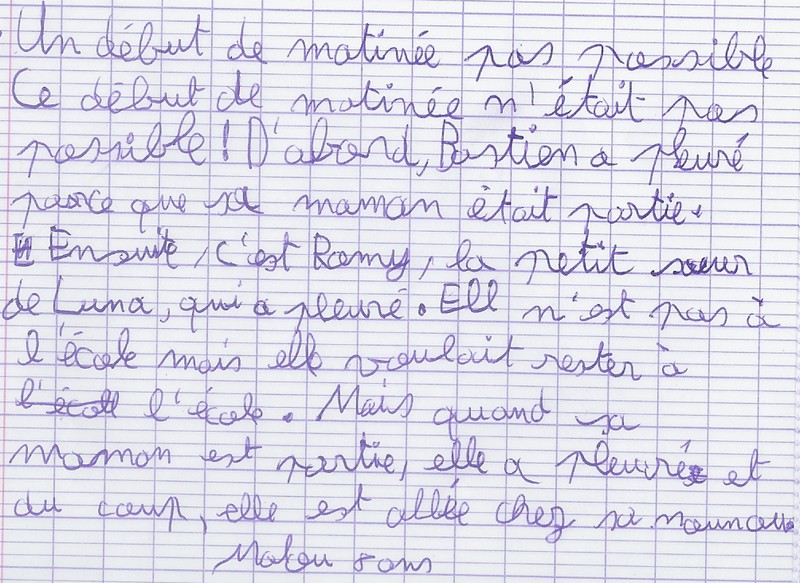 Un début de matinée pas possible
Ce début de matinée n'était pas
possible ! D'abord, Bastien a pleuré
parce que sa maman était partie.
Ensuite, c'est Romy, la petit sœur
de Luna, qui a pleuré. Ell n'est pas à
l'école mais elle voulait rester à
l'écoll l'école. Mais quand sa
maman est partie, elle a pleuré et
du coup, elle est allée chez sa nounou.
Malou 8 ans